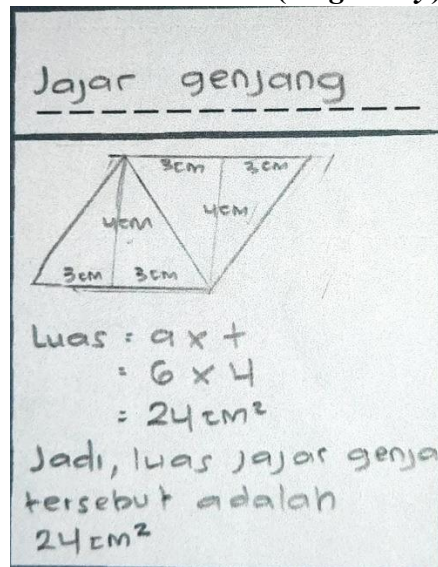 Jajar genjang
3cm 3cm
4cm 4cm
3cm 3cm
Luas = a x t
= 6 x 4
= 24 cm²
Jadi, luas jajar genja
tersebut adalah
24 cm²